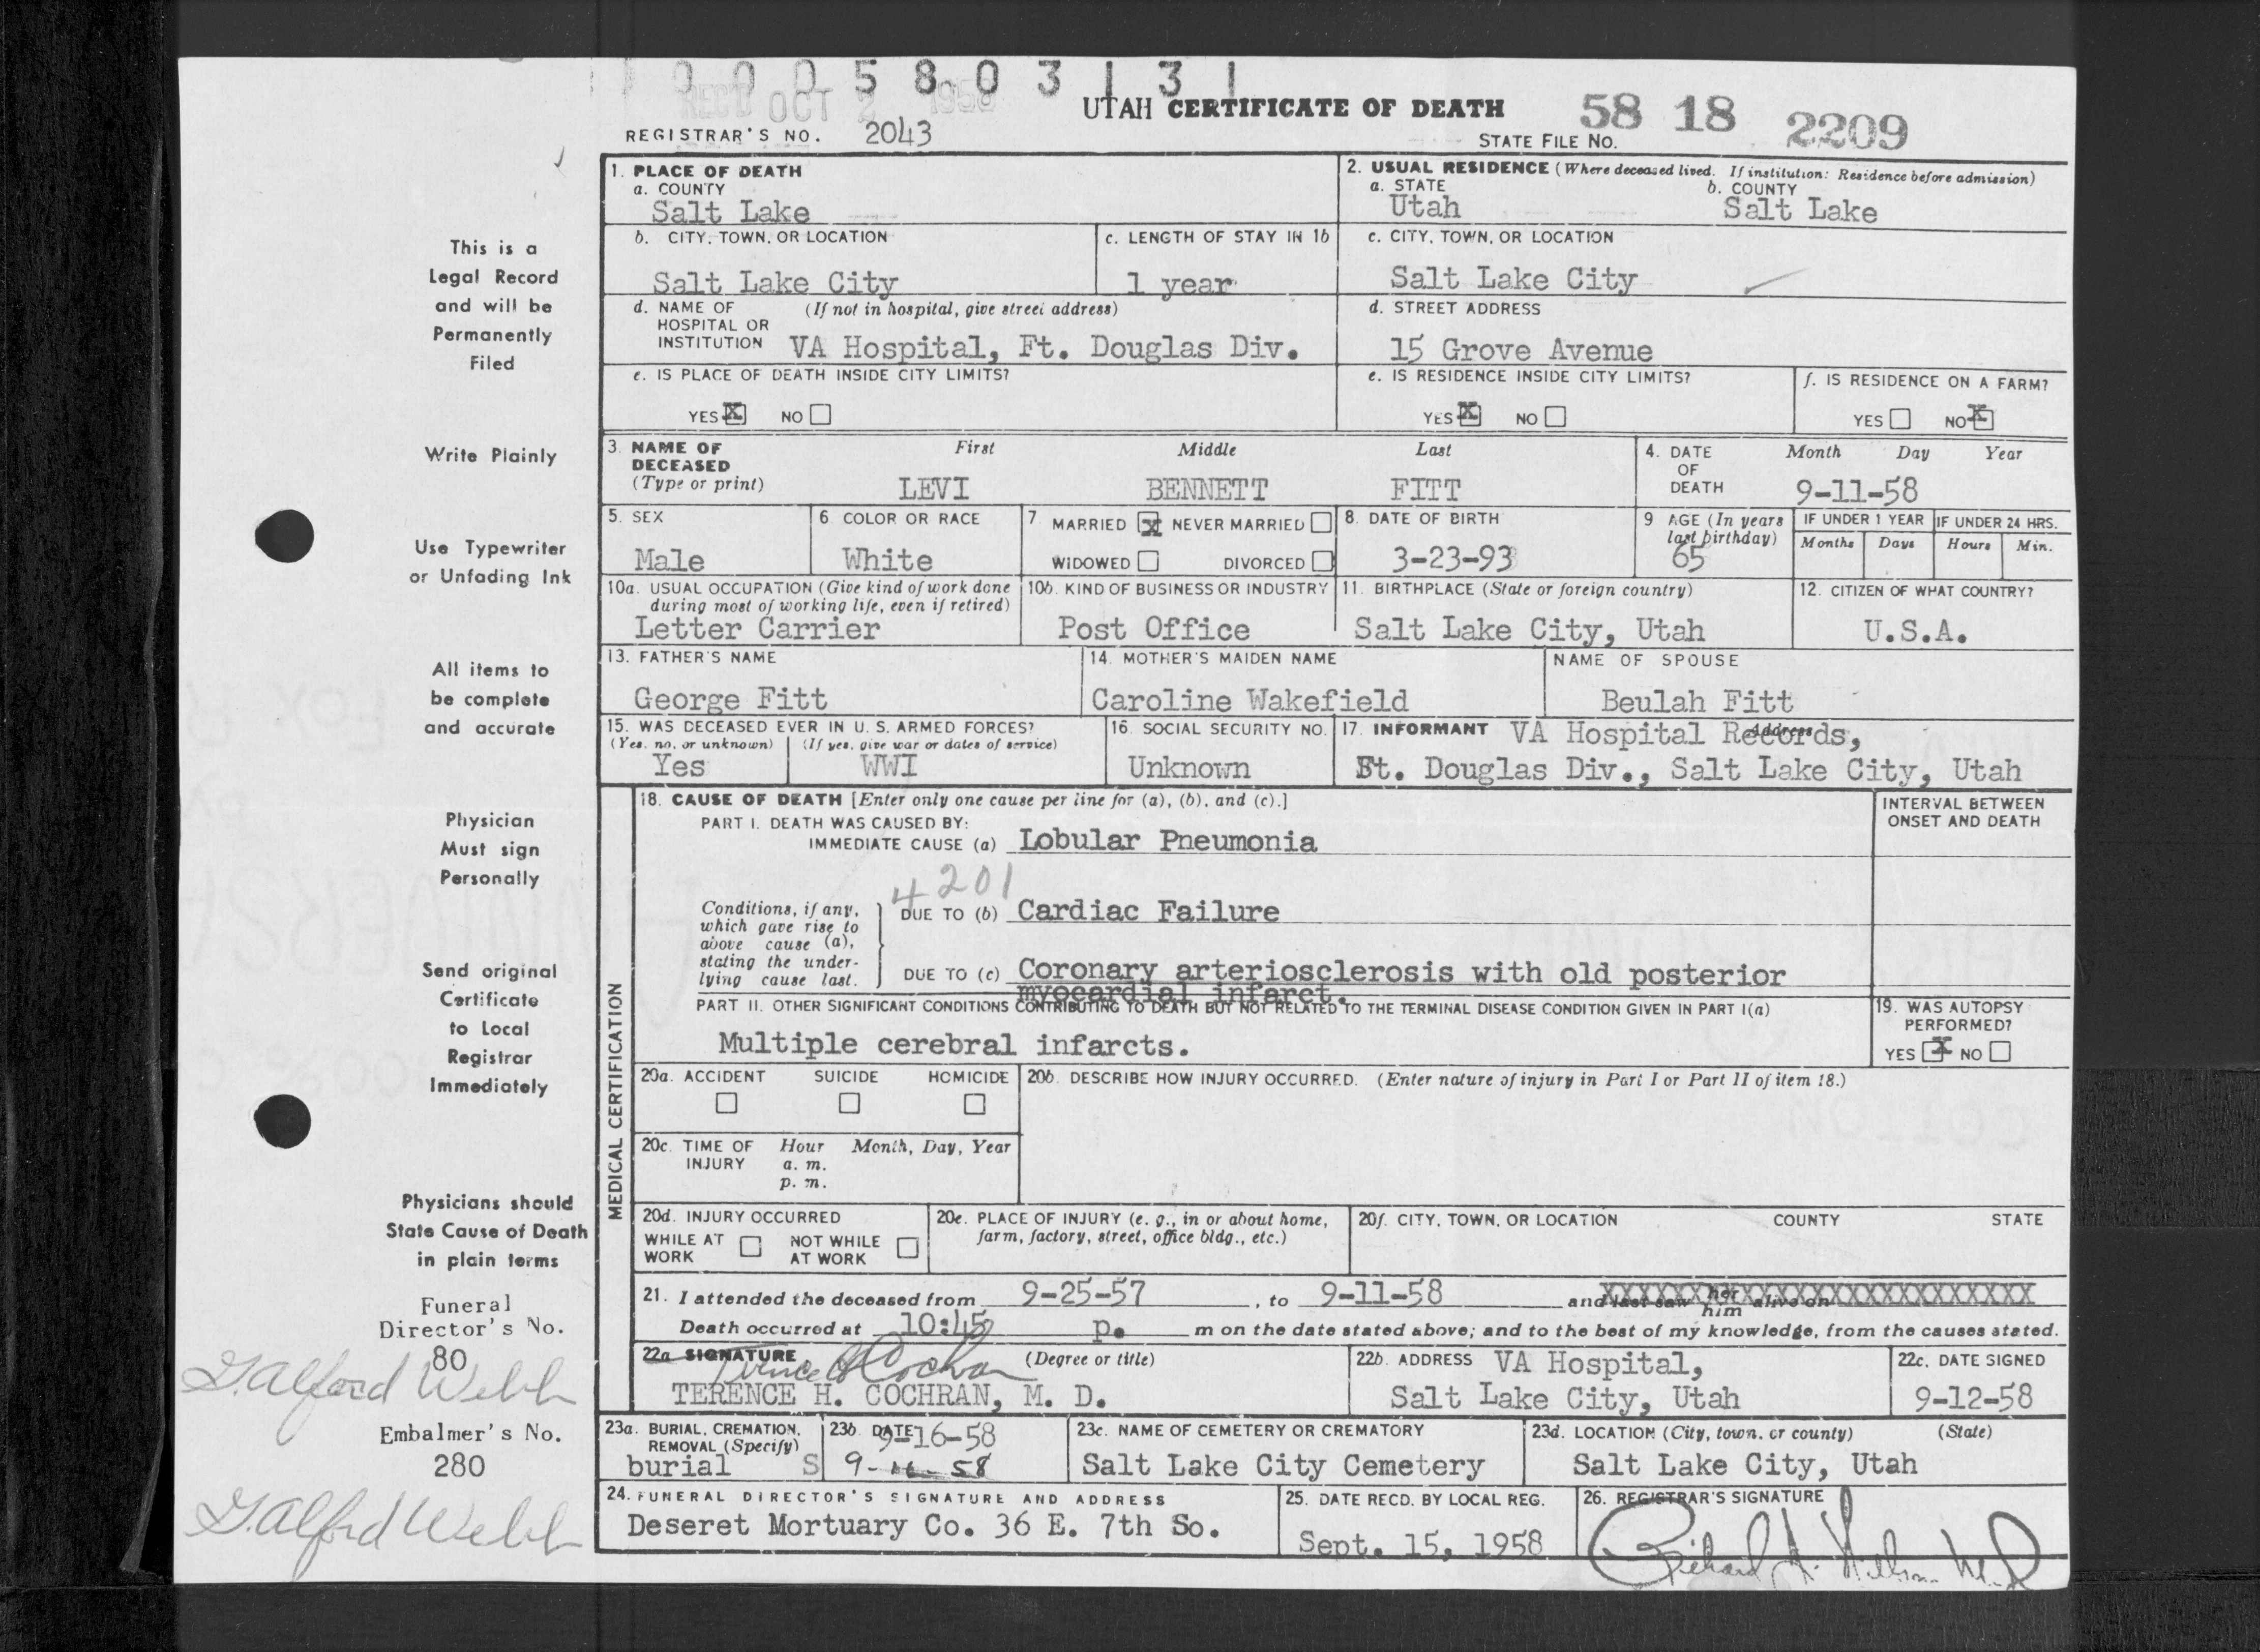 1 0 0 0 5 8 0 3 1 3 1
REC'D OCT 2 1958
UTAH CERTIFICATE OF DEATH
58 18 2209
REGISTRAR'S NO. 2043
STATE FILE NO.
1. PLACE OF DEATH
a. COUNTY
Salt Lake
2. USUAL RESIDENCE (Where deceased lived. If institution: Residence before admission)
a. STATE b. COUNTY
Utah Salt Lake
b. CITY, TOWN, OR LOCATION
Salt Lake City
c. LENGTH OF STAY IN 1b
1 year
c. CITY, TOWN, OR LOCATION
Salt Lake City
d. NAME OF (If not in hospital, give street address)
HOSPITAL OR
INSTITUTION VA Hospital, Ft. Douglas Div.
d. STREET ADDRESS
15 Grove Avenue
e. IS PLACE OF DEATH INSIDE CITY LIMITS?
YES X NO
e. IS RESIDENCE INSIDE CITY LIMITS?
YES X NO
f. IS RESIDENCE ON A FARM?
YES NO X
3. NAME OF DECEASED
(Type or print)
First Middle Last
LEVI BENNETT FITT
4. DATE OF DEATH
Month Day Year
9-11-58
5. SEX
Male
6 COLOR OR RACE
White
7 MARRIED X NEVER MARRIED
WIDOWED DIVORCED
8. DATE OF BIRTH
3-23-93
9 AGE (In years last birthday)
65
IF UNDER 1 YEAR
Months Days
IF UNDER 24 HRS.
Hours Min.
10a. USUAL OCCUPATION (Give kind of work done
during most of working life, even if retired)
Letter Carrier
10b. KIND OF BUSINESS OR INDUSTRY
Post Office
11. BIRTHPLACE (State or foreign country)
Salt Lake City, Utah
12. CITIZEN OF WHAT COUNTRY?
U.S.A.
13. FATHER'S NAME
George Fitt
14. MOTHER'S MAIDEN NAME
Caroline Wakefield
NAME OF SPOUSE
Beulah Fitt
15. WAS DECEASED EVER IN U. S. ARMED FORCES?
(Yes, no, or unknown) (If yes, give war or dates of service)
Yes WWI
16. SOCIAL SECURITY NO.
Unknown
17. INFORMANT Address
VA Hospital Records,
Ft. Douglas Div., Salt Lake City, Utah
MEDICAL CERTIFICATION
18. CAUSE OF DEATH [Enter only one cause per line for (a), (b), and (c).]
INTERVAL BETWEEN
ONSET AND DEATH
PART I. DEATH WAS CAUSED BY:
IMMEDIATE CAUSE (a) Lobular Pneumonia
4201
Conditions, if any,
which gave rise to
above cause (a),
stating the under-
lying cause last.
DUE TO (b) Cardiac Failure
DUE TO (c) Coronary arteriosclerosis with old posterior
myocardial infarct.
PART II. OTHER SIGNIFICANT CONDITIONS CONTRIBUTING TO DEATH BUT NOT RELATED TO THE TERMINAL DISEASE CONDITION GIVEN IN PART I(a)
Multiple cerebral infarcts.
19. WAS AUTOPSY
PERFORMED?
YES X NO
20a. ACCIDENT SUICIDE HOMICIDE
20b. DESCRIBE HOW INJURY OCCURRED. (Enter nature of injury in Part I or Part II of item 18.)
20c. TIME OF INJURY
Hour Month, Day, Year
a. m.
p. m.
20d. INJURY OCCURRED
WHILE AT WORK NOT WHILE AT WORK
20e. PLACE OF INJURY (e. g., in or about home,
farm, factory, street, office bldg., etc.)
20f. CITY, TOWN, OR LOCATION COUNTY STATE
21. I attended the deceased from 9-25-57, to 9-11-58 and last saw her him alive on XXXXXXXXXXXXXXXXXXXXXXXX
Death occurred at 10:45 p. m on the date stated above; and to the best of my knowledge, from the causes stated.
22a SIGNATURE (Degree or title)
Terence H Cochran
TERENCE H. COCHRAN, M. D.
22b. ADDRESS VA Hospital,
Salt Lake City, Utah
22c. DATE SIGNED
9-12-58
23a. BURIAL, CREMATION,
REMOVAL (Specify)
burial S
23b. DATE
9-16-58
9-16-58
23c. NAME OF CEMETERY OR CREMATORY
Salt Lake City Cemetery
23d. LOCATION (City, town, or county) (State)
Salt Lake City, Utah
24. FUNERAL DIRECTOR'S SIGNATURE AND ADDRESS
Deseret Mortuary Co. 36 E. 7th So.
25. DATE RECD. BY LOCAL REG.
Sept. 15, 1958
26. REGISTRAR'S SIGNATURE
This is a
Legal Record
and will be
Permanently
Filed
Write Plainly
Use Typewriter
or Unfading Ink
All items to
be complete
and accurate
Physician
Must sign
Personally
Send original
Certificate
to Local
Registrar
Immediately
Physicians should
State Cause of Death
in plain terms
Funeral
Director's No.
80
G. Alford Webb
Embalmer's No.
280
G. Alford Webb